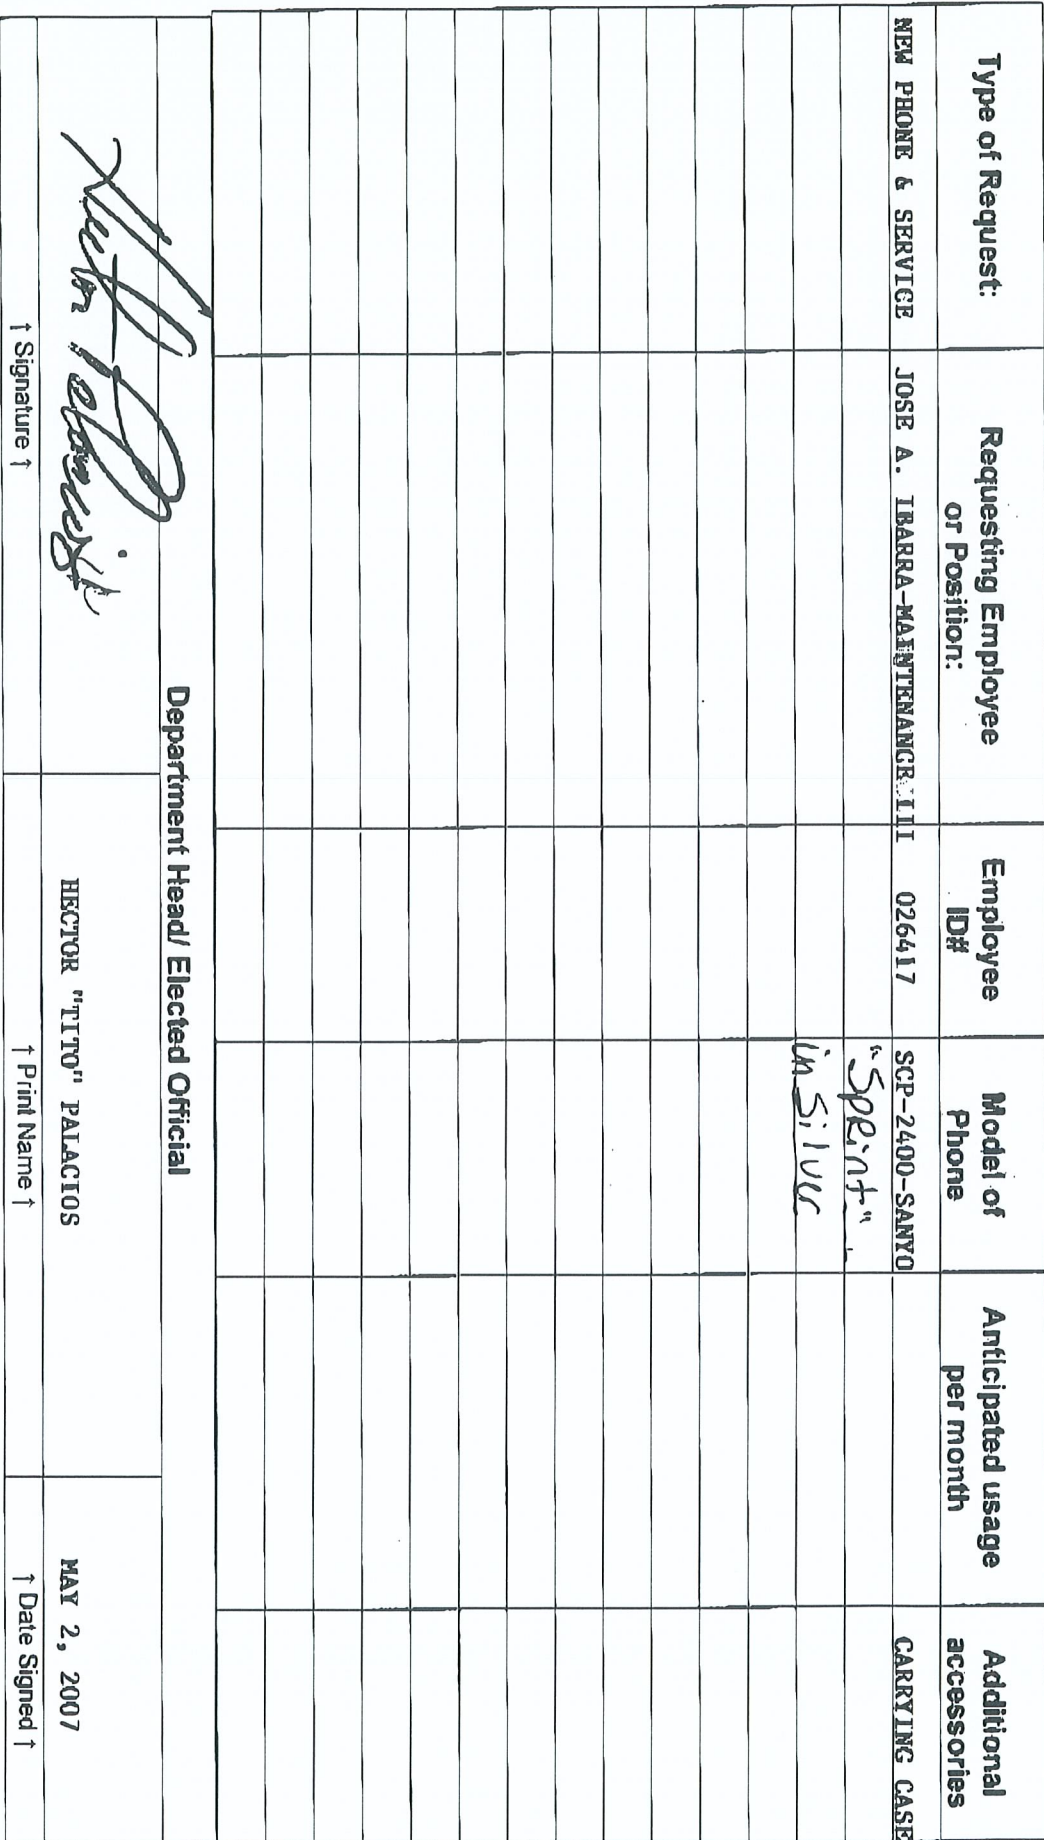 Type of Request:
Requesting Employee
or Position:
Employee
ID#
Model of
Phone
Anticipated usage
per month
Additional
accessories
NEW PHONE & SERVICE
JOSE A. IBARRA-MAINTENANCE III
026417
SCP-2400-SANYO
CARRYING CASE
"Sprint"
in Silver
Department Head/ Elected Official
HECTOR "TITO" PALACIOS
MAY 2, 2007
↑ Signature ↑
↑ Print Name ↑
↑ Date Signed ↑